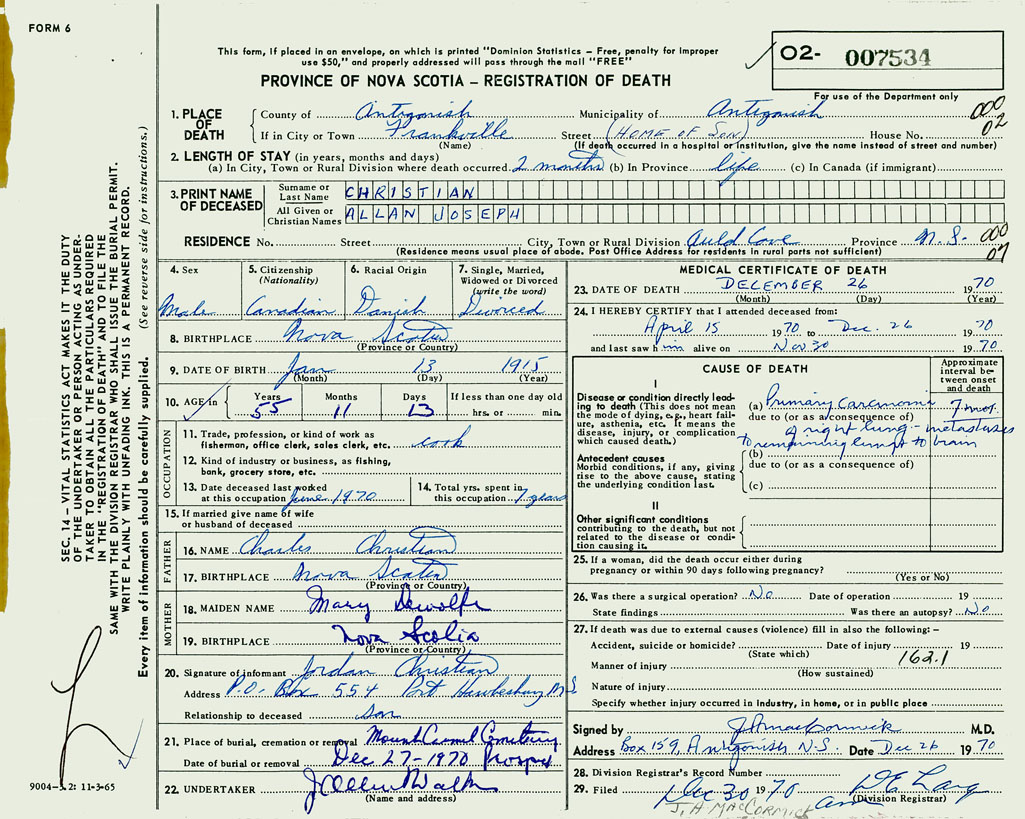 FORM 6
This form, if placed in an envelope, on which is printed "Dominion Statistics – Free, penalty for improper
use $50," and properly addressed will pass through the mail "FREE"
PROVINCE OF NOVA SCOTIA – REGISTRATION OF DEATH
02- 007534
For use of the Department only
1. PLACE OF DEATH
County of Antigonish Municipality of Antigonish 000
If in City or Town Frankville Street (HOME OF SON) House No. 02
(Name) (If death occurred in a hospital or institution, give the name instead of street and number)
2. LENGTH OF STAY (in years, months and days)
(a) In City, Town or Rural Division where death occurred 2 months (b) In Province life (c) In Canada (if immigrant)
3. PRINT NAME OF DECEASED
Surname or Last Name CHRISTIAN
All Given or Christian Names ALLAN JOSEPH
RESIDENCE No. Street City, Town or Rural Division Auld Cove Province N.S. 000
07
(Residence means usual place of abode. Post Office Address for residents in rural parts not sufficient)
4. Sex
Male
5. Citizenship (Nationality)
Canadian
6. Racial Origin
Danish
7. Single, Married, Widowed or Divorced (write the word)
Divorced
8. BIRTHPLACE Nova Scotia
(Province or Country)
9. DATE OF BIRTH Jan 13 1915
(Month) (Day) (Year)
10. AGE in Years Months Days If less than one day old
55 11 13 hrs. or min.
OCCUPATION
11. Trade, profession, or kind of work as
fisherman, office clerk, sales clerk, etc. cook
12. Kind of industry or business, as fishing,
bank, grocery store, etc.
13. Date deceased last worked
at this occupation June 1970
14. Total yrs. spent in
this occupation 7 years
15. If married give name of wife
or husband of deceased
FATHER
16. NAME Charles Christian
17. BIRTHPLACE Nova Scotia
(Province or Country)
MOTHER
18. MAIDEN NAME Mary Dewolfe
19. BIRTHPLACE Nova Scotia
(Province or Country)
20. Signature of informant Jordan Christian
Address P.O. Box 554 Port Hawkesbury N S
Relationship to deceased son
21. Place of burial, cremation or removal Mount Carmel Cemetery
Date of burial or removal Dec 27-1970 Prospect
22. UNDERTAKER
(Name and address)
MEDICAL CERTIFICATE OF DEATH
23. DATE OF DEATH DECEMBER 26 1970
(Month) (Day) (Year)
24. I HEREBY CERTIFY that I attended deceased from:
April 15 1970 to Dec. 26 1970
and last saw him alive on Nov 30 1970
CAUSE OF DEATH
Approximate interval between onset and death
I
Disease or condition directly leading to death (This does not mean the mode of dying, e.g., heart failure, asthenia, etc. It means the disease, injury, or complication which caused death.)
(a) Primary Carcinoma 7 mos.
due to (or as a consequence of)
of right lung - metastases
to remaining lung & to brain
Antecedent causes
Morbid conditions, if any, giving rise to the above cause, stating the underlying condition last.
(b)
due to (or as a consequence of)
(c)
II
Other significant conditions
contributing to the death, but not related to the disease or condition causing it.
25. If a woman, did the death occur either during
pregnancy or within 90 days following pregnancy?
(Yes or No)
26. Was there a surgical operation? No Date of operation 19
State findings Was there an autopsy? No
27. If death was due to external causes (violence) fill in also the following: –
Accident, suicide or homicide? Date of injury 19
(State which) 162.1
Manner of injury
(How sustained)
Nature of injury
Specify whether injury occurred in industry, in home, or in public place
Signed by J A MacCormick M.D.
Address Box 159, Antigonish N.S. Date Dec 26 1970
28. Division Registrar's Record Number
29. Filed Dec 30 1970
(Division Registrar)
J. A. MACCORMICK
SEC. 14 – VITAL STATISTICS ACT MAKES IT THE DUTY
OF THE UNDERTAKER OR PERSON ACTING AS UNDER-
TAKER TO OBTAIN ALL THE PARTICULARS REQUIRED
IN THE "REGISTRATION OF DEATH" AND TO FILE THE
SAME WITH THE DIVISION REGISTRAR WHO SHALL ISSUE THE BURIAL PERMIT.
WRITE PLAINLY WITH UNFADING INK. THIS IS A PERMANENT RECORD.
Every item of information should be carefully supplied. (See reverse side for instructions.)
9004-5.2: 11-3-65